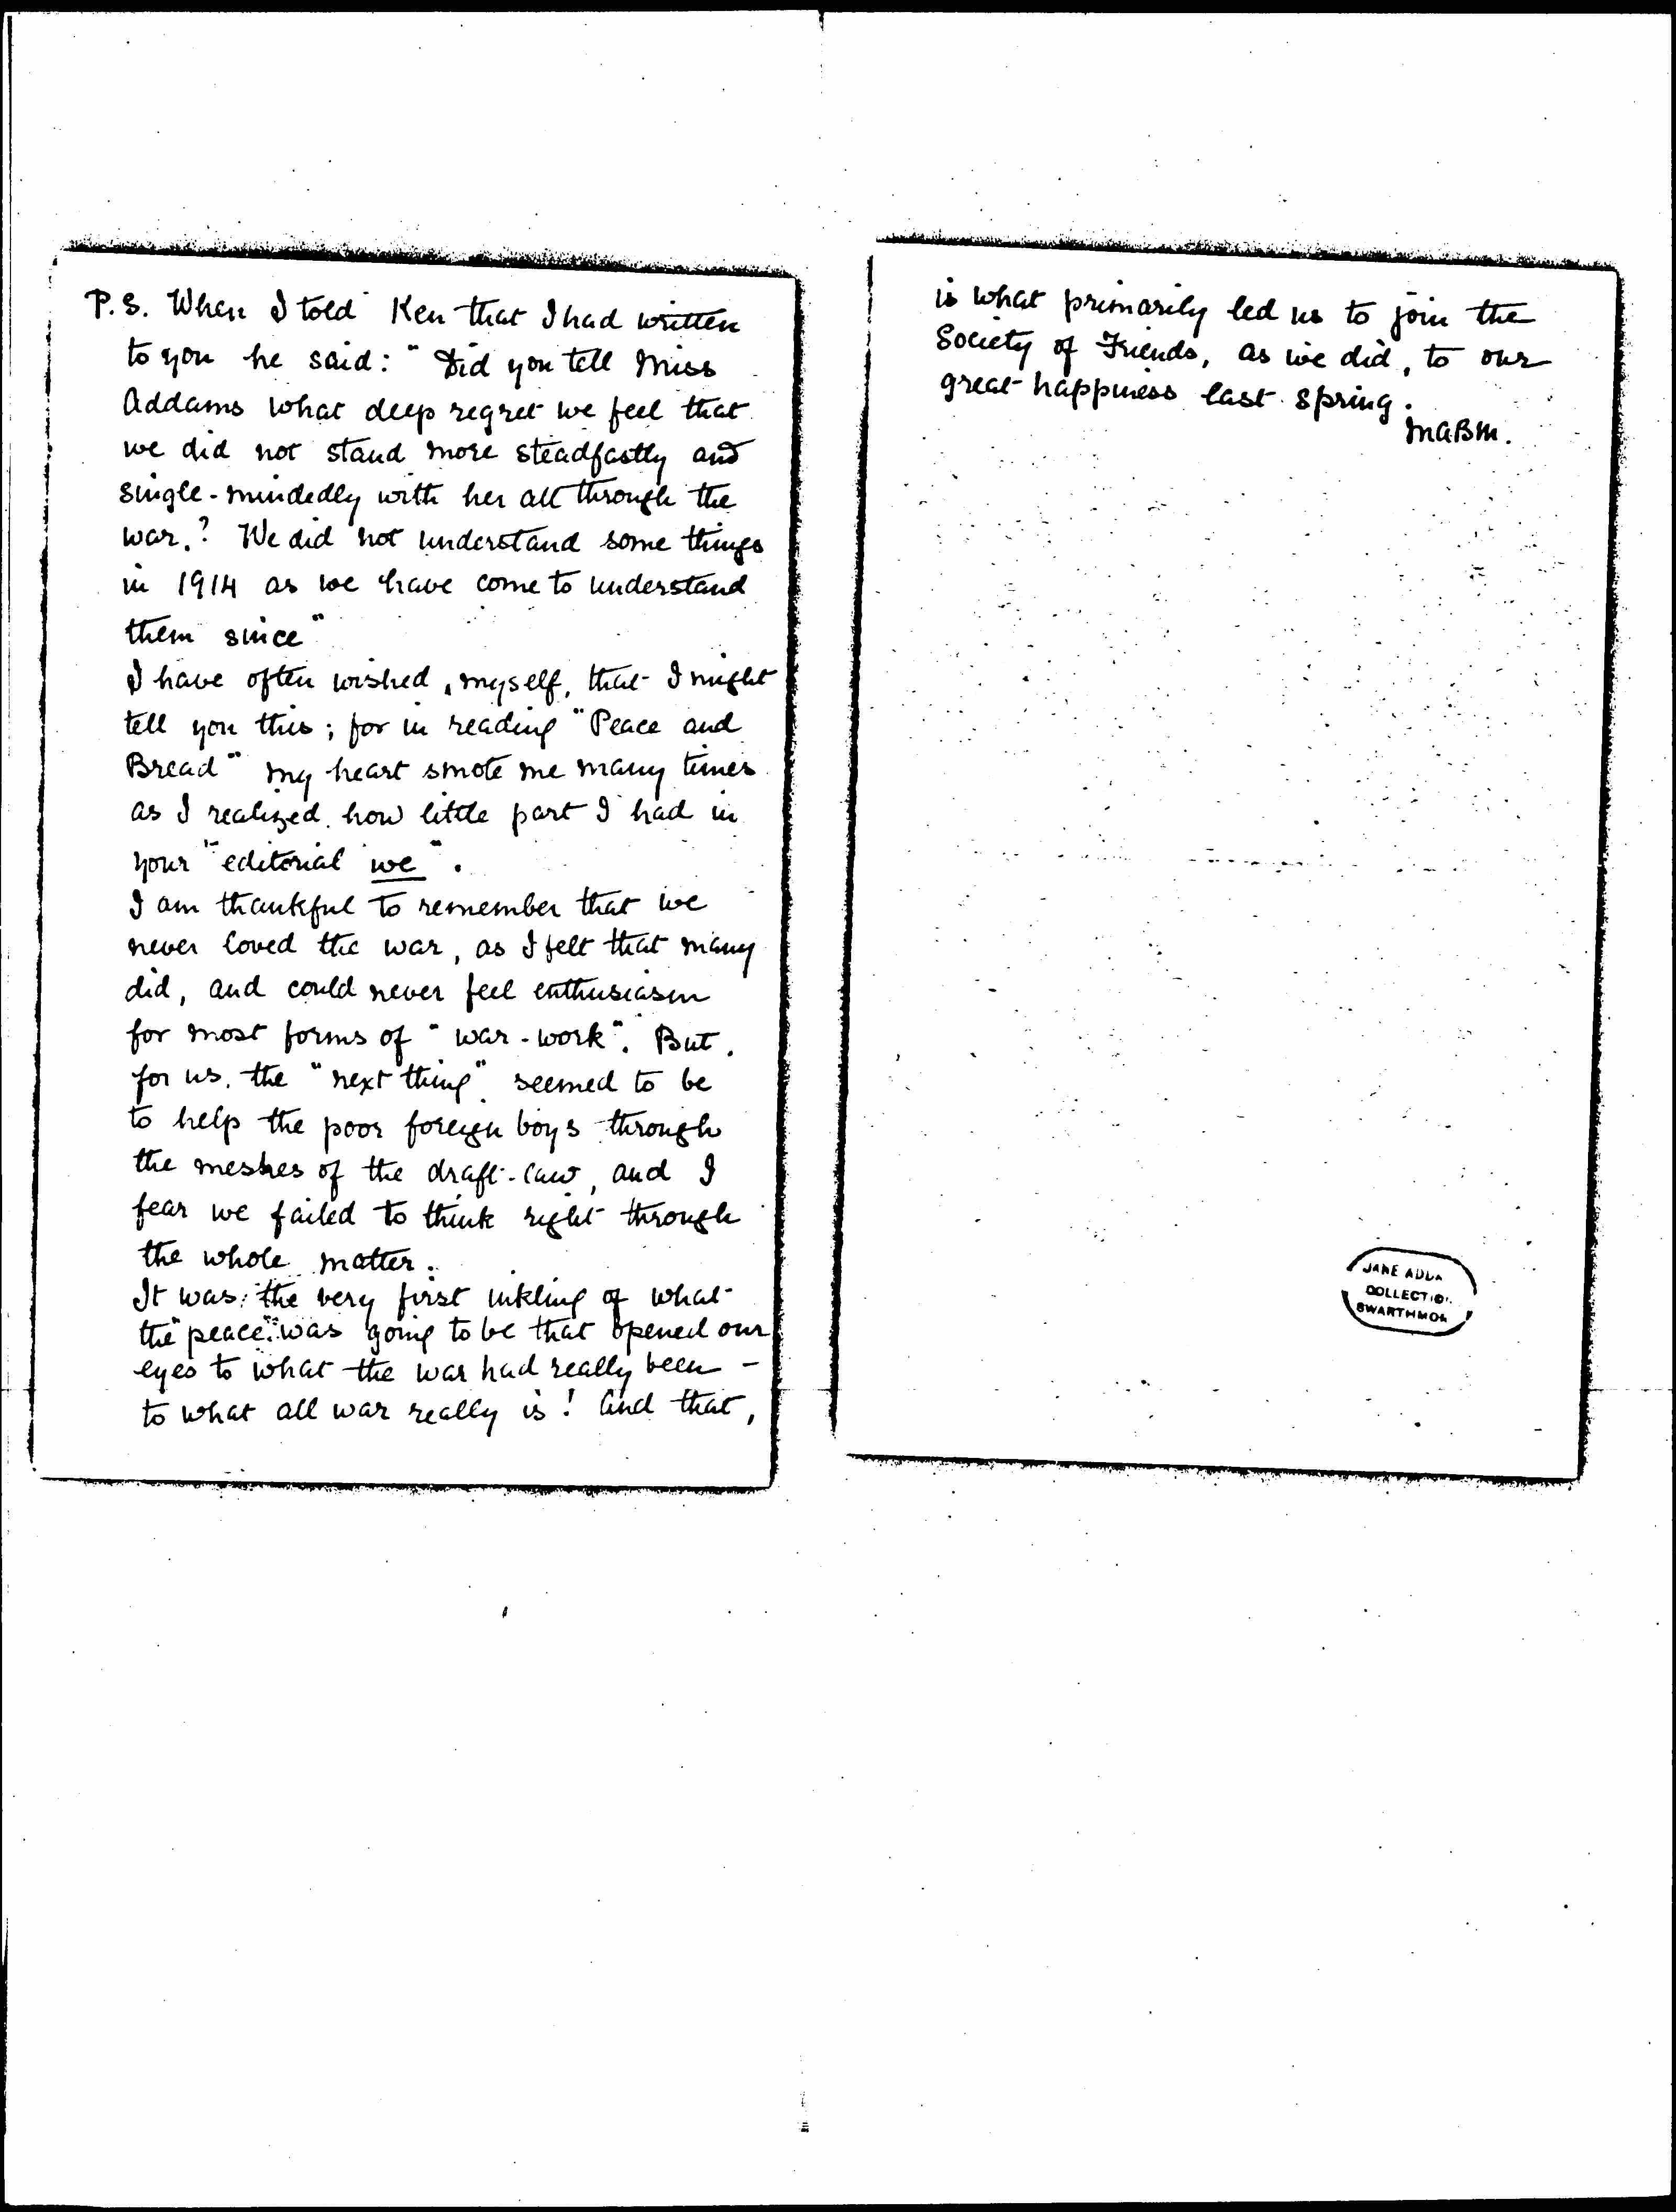 P.S. When I told Ken that I had written
to you he said: "Did you tell Miss
Addams what deep regret we feel that
we did not stand more steadfastly and
single-mindedly with her all through the
war.? We did not understand some things
in 1914 as we have come to understand
them since"
I have often wished, myself, that I might
tell you this; for in reading "Peace and
Bread" my heart smote me many times
as I realized how little part I had in
your "editorial we".
I am thankful to remember that we
never loved the war, as I felt that many
did, and could never feel enthusiasm
for most forms of "war-work". But
for us, the "next thing" seemed to be
to help the poor foreign boys through
the meshes of the draft-law, and I
fear we failed to think right through
the whole matter.
It was the very first inkling of what
the "peace" was going to be that opened our
eyes to what the war had really been -
to what all war really is! And that,
is what primarily led us to join the
Society of Friends, as we did, to our
great happiness last spring.
MABM.
JANE ADDA
COLLECTION
SWARTHMOR